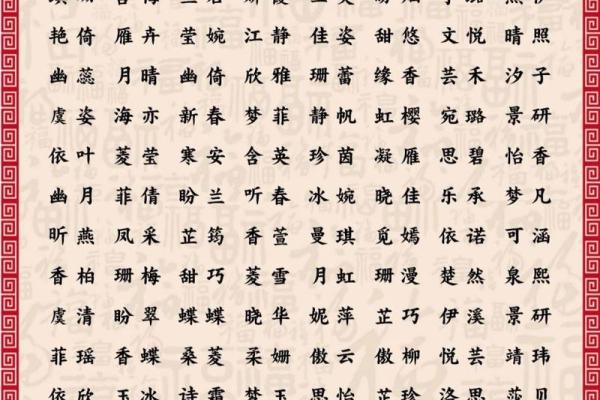 艳倚 雁卉 莹婉 江静 佳姿 甜悠 文悦 晴照
幽蕊 月晴 幽倚 欣雅 珊蕾 缘香 芸禾 汐子
虞姿 海亦 新春 梦菲 静帆 虹樱 宛璐 景研
依叶 菱莹 寒安 含英 珍茵 凝雁 思碧 怡香
幽月 菲倩 盼兰 听春 冰婉 晓佳 乐承 梦凡
昕燕 凤采 芷筠 香萱 曼琪 觅嫣 依诺 可涵
香柏 珊梅 甜巧 菱雪 月虹 珊漫 楚然 泉熙
虞清 盼翠 蝶蝶 晓华 妮萍 芷巧 伊溪 景研
菲瑶 香蝶 桑菱 柔姗 傲云 傲柳 悦芸 靖玮
依欣 玉冰 诗霜 梦玉 思怡 芷珍 洛思 莎贝